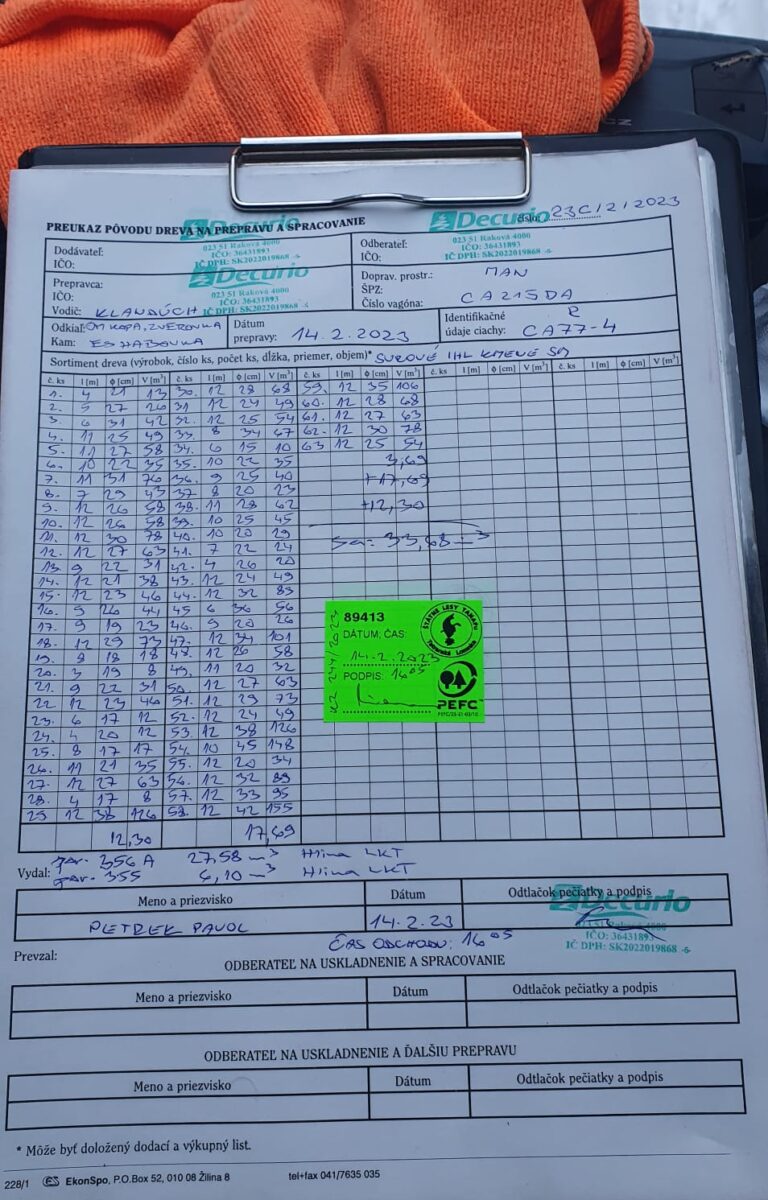 PREUKAZ PÔVODU DREVA NA PREPRAVU A SPRACOVANIE
číslo: 23C/2/2023
Decurio
023 51 Raková 4000
IČO: 36431893
IČ DPH: SK2022019868
Decurio
023 51 Raková 4000
IČO: 36431893
IČ DPH: SK2022019868
Dodávateľ:
IČO:
Odberateľ:
IČO:
Decurio
023 51 Raková 4000
IČO: 36431893
IČ DPH: SK2022019868
Prepravca:
IČO:
Vodič: KLANDÚCH
Doprav. prostr.: MAN
ŠPZ:
Číslo vagóna: CA215DA
Odkiaľ: OM KOPA, ZVEROVKA
Kam: ES HABOVKA
Dátum prepravy: 14.2.2023
Identifikačné údaje ciachy: R CA77-4
Sortiment dreva (výrobok, číslo ks, počet ks, dĺžka, priemer, objem)* SUROVÉ IHL KMENE SM
č. ks l [m] ϕ [cm] V [m³] č. ks l [m] ϕ [cm] V [m³] č. ks l [m] ϕ [cm] V [m³] č. ks l [m] ϕ [cm] V [m³] č. ks l [m] ϕ [cm] V [m³]
1. 4 21 13 30. 12 28 68 59. 12 35 106
2. 5 27 26 31 12 24 49 60. 12 28 68
3. 6 31 42 32. 12 25 54 61. 12 27 63
4. 11 25 49 33. 8 34 67 62. 12 30 78
5. 11 27 58 34. 6 15 10 63 12 25 54
6. 10 22 35 35. 10 22 35 3,69
7. 11 31 76 36. 9 25 40 +17,69
8. 7 29 43 37. 8 20 23
9. 12 26 58 38. 11 28 62 +12,30
10. 12 26 58 39. 10 25 45
11. 12 30 78 40. 10 20 29
12. 12 27 63 41. 7 22 24 Sa= 33,68 m³
13 9 22 31 42. 4 26 20
14. 12 21 38 43. 12 24 49
15. 12 23 46 44. 12 32 89
16. 9 26 44 45 6 36 56
17. 9 19 23 46. 9 20 26
18. 12 29 73 47. 12 34 101
19. 8 18 18 48. 12 26 58
20. 3 19 8 49. 11 20 32
21. 9 22 31 50. 12 27 63
22 12 23 46 51. 12 29 73
23. 6 17 12 52. 12 24 49
24. 4 20 12 53. 12 38 126
25. 8 17 17 54. 10 45 148
26. 11 21 35 55. 12 20 34
27. 12 27 63 56. 12 32 89
28. 4 17 8 57. 12 33 95
29 12 38 126 58. 12 42 155
12,30 17,69
89413
DÁTUM, ČAS:
14.2.2023
16⁰⁵
PODPIS:
ŠTÁTNE LESY TANAPU
Tatranská Lomnica
PEFC
356 A 27,58 m³ Hlina LKT
Vydal: 355 6,10 m³ Hlina LKT
Meno a priezvisko Dátum Odtlačok pečiatky a podpis
PETREK PAVOL 14.2.23
Decurio
IČO: 36431893
IČ DPH: SK2022019868
ČAS ODCHODU: 16⁰⁵
Prevzal:
ODBERATEĽ NA USKLADNENIE A SPRACOVANIE
Meno a priezvisko Dátum Odtlačok pečiatky a podpis
ODBERATEĽ NA USKLADNENIE A ĎALŠIU PREPRAVU
Meno a priezvisko Dátum Odtlačok pečiatky a podpis
* Môže byť doložený dodací a výkupný list.
228/1 EkonSpo, P.O.Box 52, 010 08 Žilina 8 tel+fax 041/7635 035